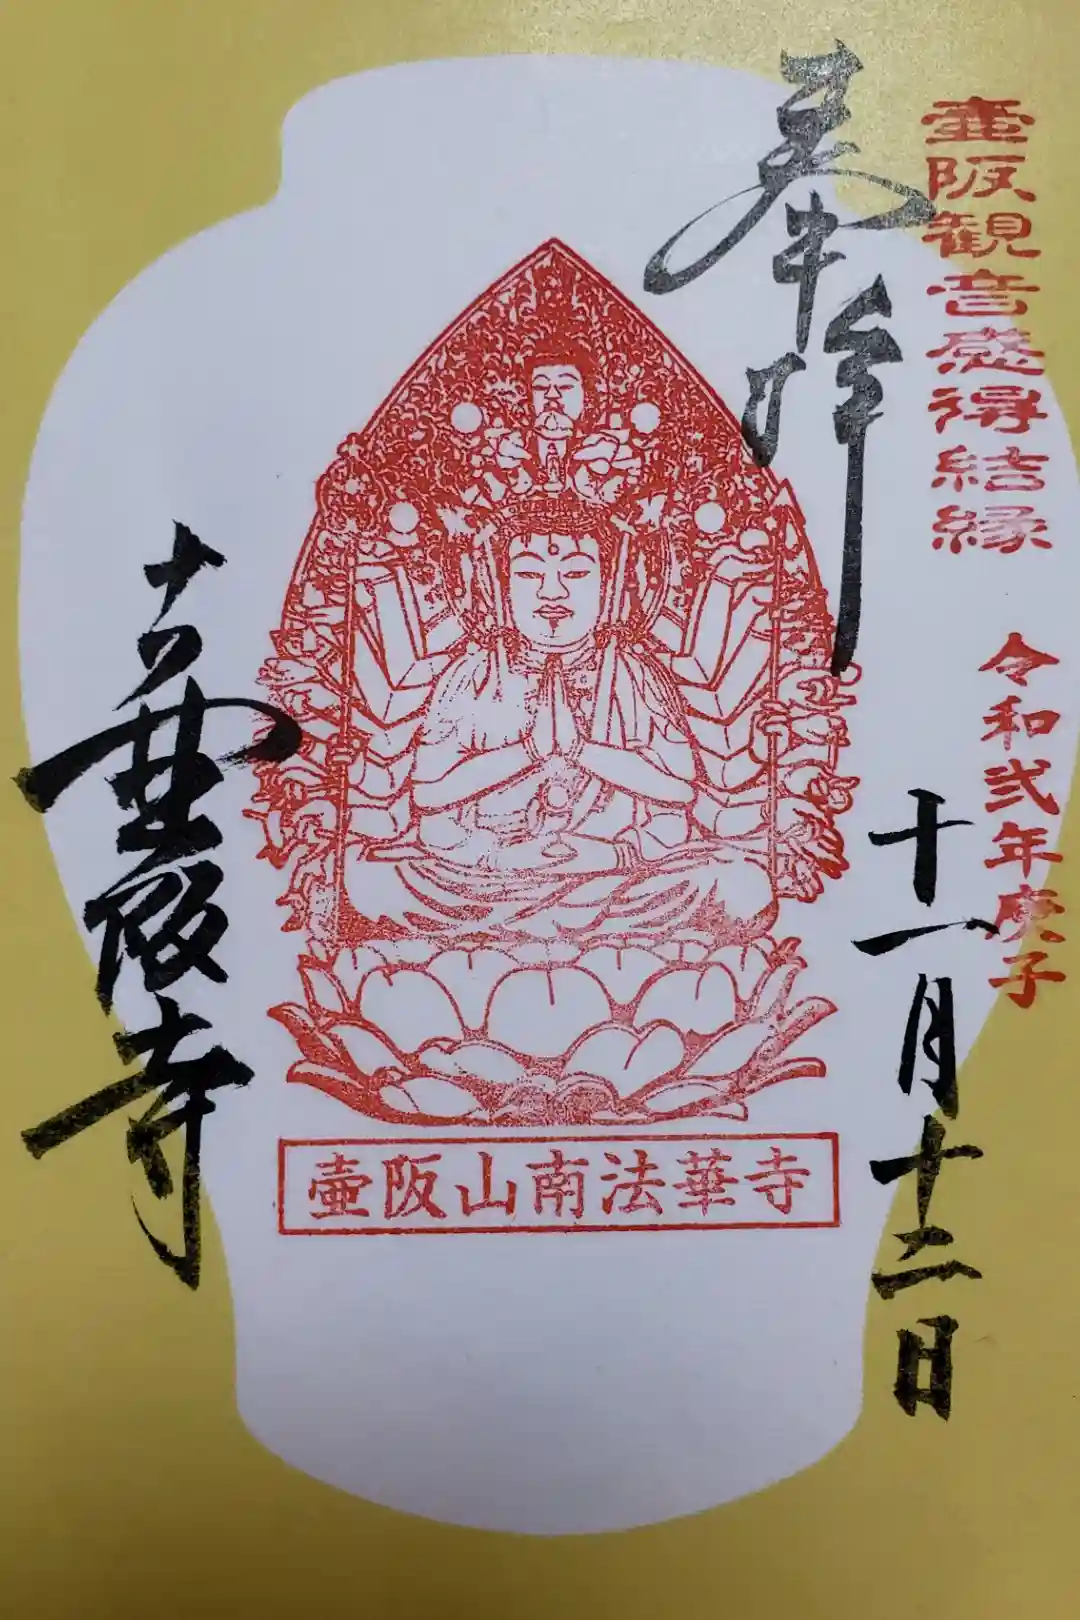 壺阪観音感得結縁
令和弐年庚子
奉拝
十一月十二日
壺阪山南法華寺
壺阪寺